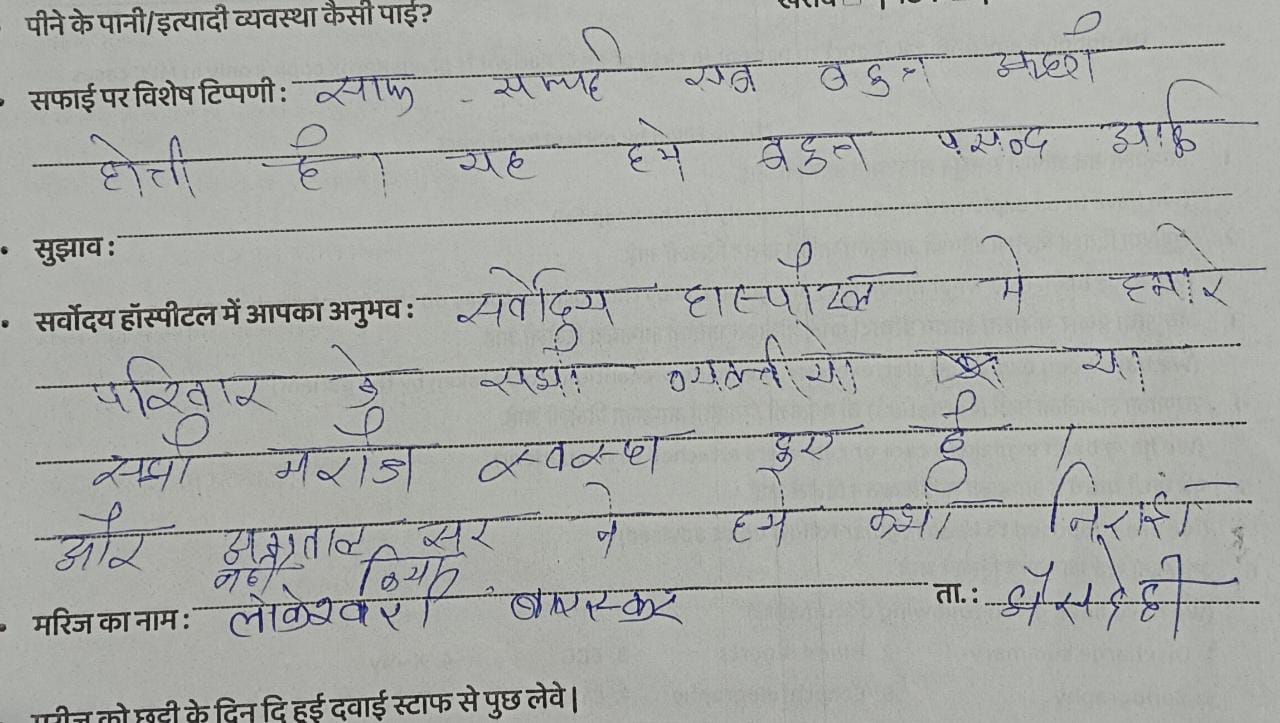 पीने के पानी/इत्यादी व्यवस्था कैसी पाई?
सफाई पर विशेष टिप्पणी : साफ - सफाई सब बहुत अच्छी
होती है। यह हमे बहुत पसन्द आई
सुझाव :
सर्वोदय हॉस्पीटल में आपका अनुभव : सर्वोदय हास्पीटल मे हमारे
परिवार के सभी व्यक्तीयो या
सभी मरीज स्वस्थ हुए है।
और अग्रवाल सर ने हमे कभी निराश
नही किया
मरिज का नाम : लोकेश्वरी बारस्कर ता.: भैसदेही
मरीज को छुट्टी के दिन दि हुई दवाई स्टाफ से पुछ लेवे |